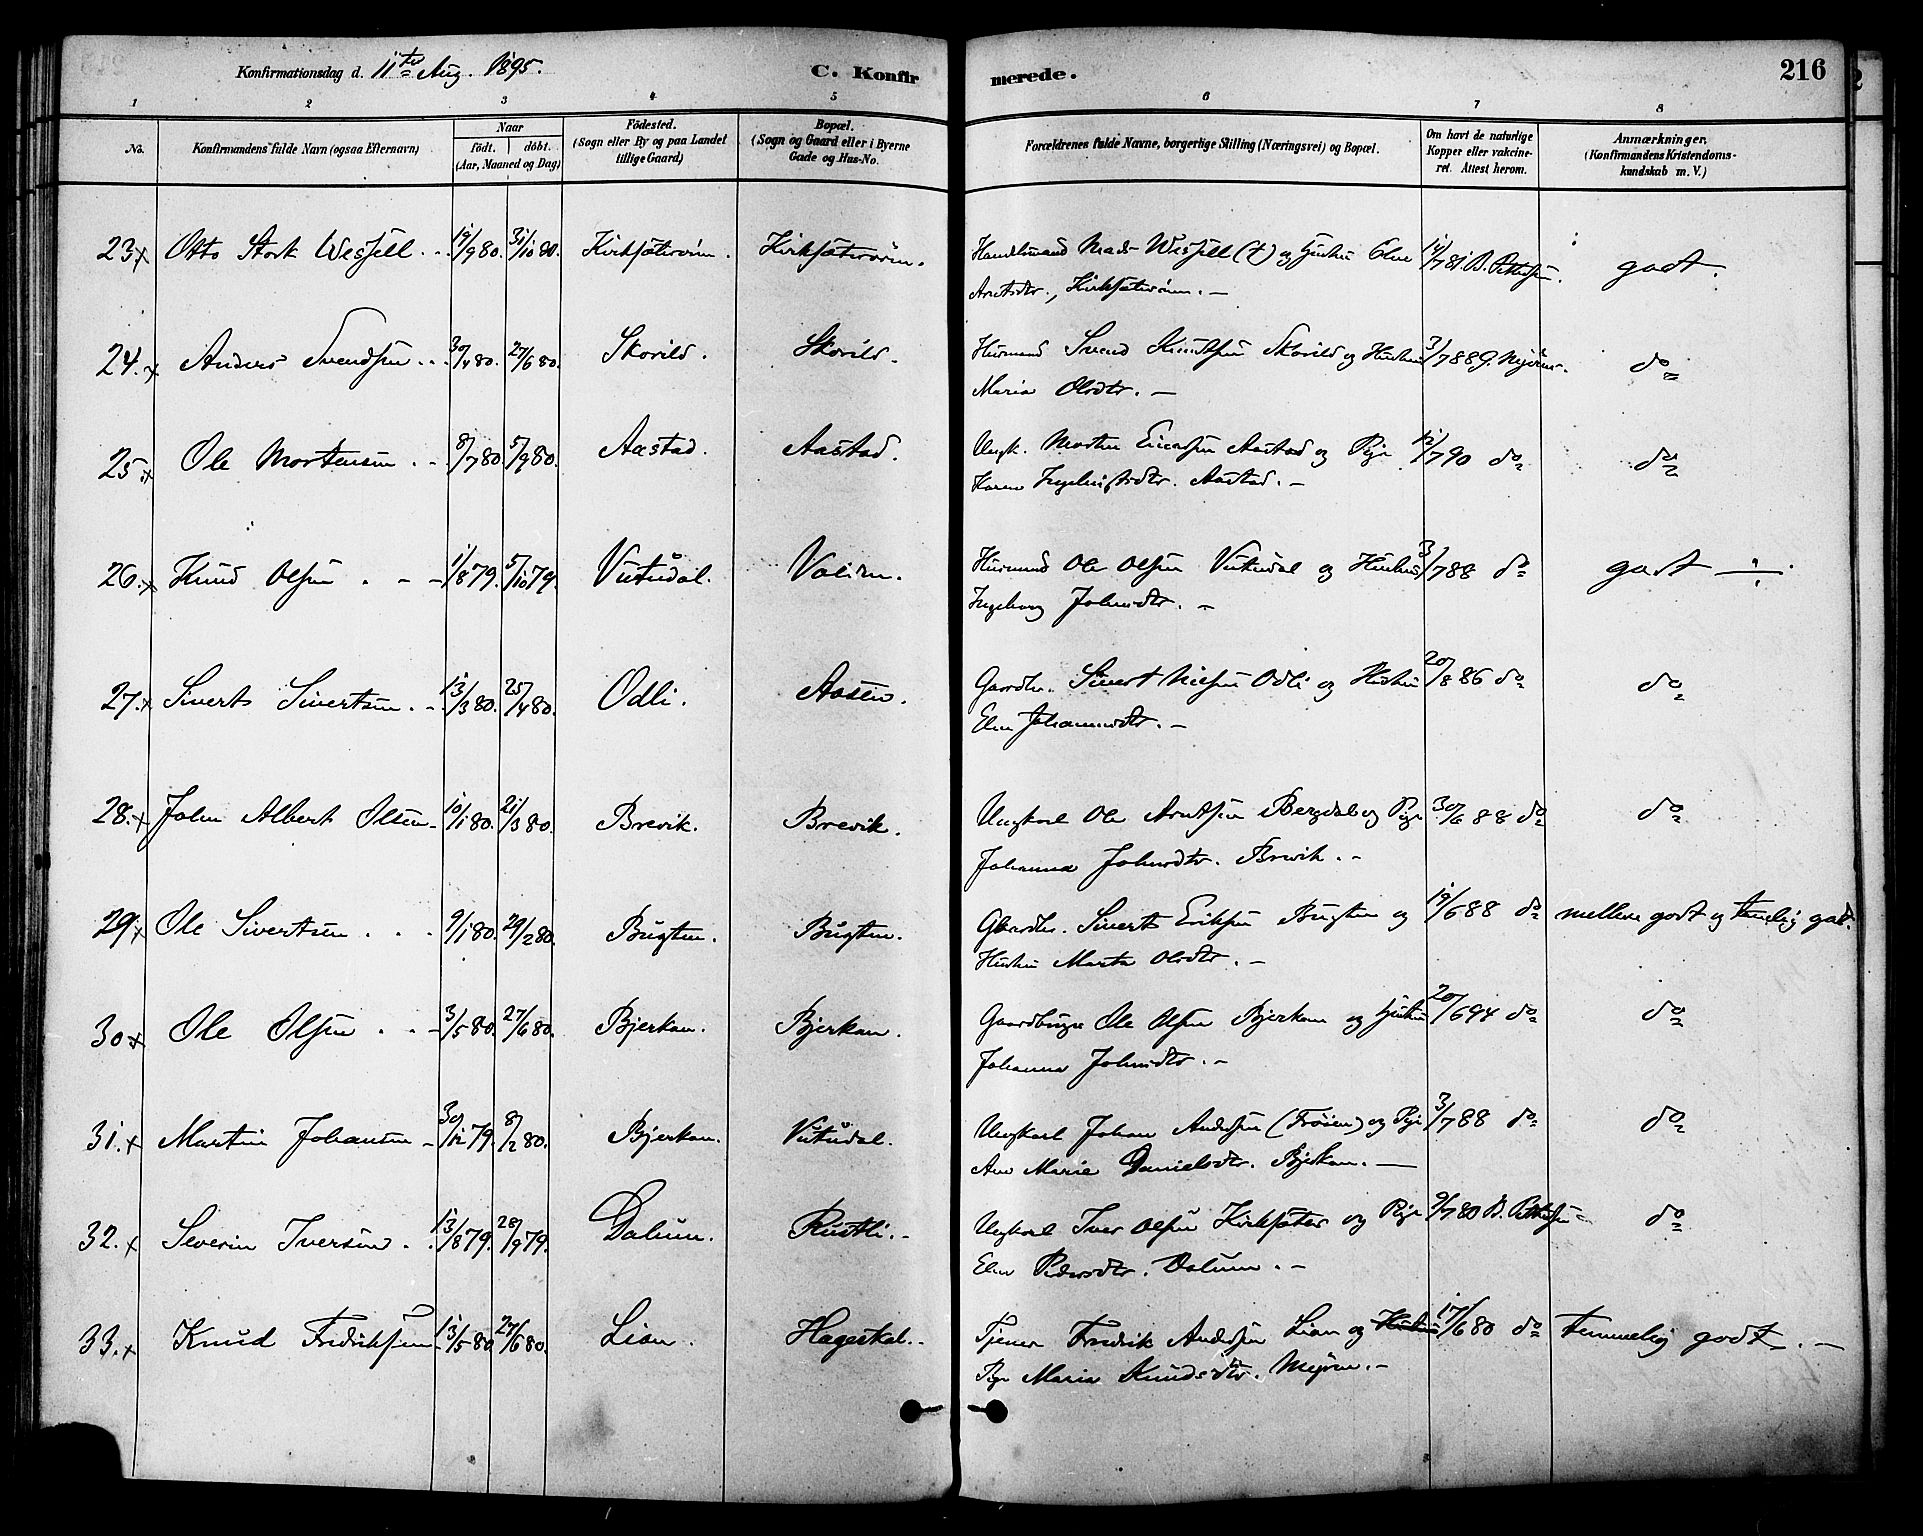 Konfirmationsdag d. 11te Aug. 1895. C. Konfirmerede. 216
1 2 3 4 5 6 7 8
No. Konfirmandens fulde Navn (ogsaa Efternavn) Naar födt. döbt. (Aar, Maaned og Dag) Födested. (Sogn eller By og paa Landet tillige Gaard) Bopæl. (Sogn og Gaard eller i Byerne Gade og Hus-No. Forældrenes fulde Navne, borgerlige Stilling (Næringsvei) og Bopæl. Om havt de naturlige Kopper eller vakcineret. Attest herom. Anmærkninger. (Konfirmandens Kristendomskundskab m. V.)
23 x Otto Stork Wessell 19/9 80. 31/10 80. Kirksæterören. Kirksæterören. Handelsmand Mads Wessell (†) og Hustru 14/7 81. B. Pettersen. godt.
Arntsdtr., Kirksæterören. —
24. x Anders Svendsen 30/4 80. 27/6 80. Skorild. Skorild. Husmand Svend Knudsen Skorild og Hustru 3/7 88 do
Maria Olsdtr. —
25 x Ole Mortensen 8/7 80. 5/9 80. Aastad. Aastad. Ungk. Morten Ericksen Aastad og Pige 12/7 90 do do
Karen Ingebrigtsdtr. Aastad. —
26. x Knud Olsen 1/8 79. 5/10 79. Vutudal. Husmand Ole Olsen Vutudal og Hustru 3/7 88 do godt ÷
Ingeborg Johnsdtr. —
27. x Siverts Sivertsen 13/3 80. 25/4 80. Odli. Aasen. Gaardbr. Sivert Nilsen Odli og Hustru 20/8 86 do do
Elen Johannesdtr. —
28. x John Albert Olsen 10/1 80. 21/3 80. Brevik. Brevik. Ungkarl Ole Arntsen Bergdal og Pige 30/6 88 do do
Johanna Johnsdtr. Brevik. —
29. x Ole Sivertsen 9/1 80. 29/2 80. Bugten. Bugten. Gaardbr. Siverts Eriksen Bugten og 19/6 88 do mellem godt og temelig godt.
Hustru Marta Olsdtr. —
30 x Ole Olsen 3/5 80. 27/6 80. Bjerkan. Bjerkan. Gaardbruger Ole Olsen Bjerkan og Hustru 20/6 94 do do
Johanna Johnsdtr. —
31. x Martin Johansen 30/12 79. 8/2 80. Bjerkan. Vutudal. Ungkarl Johan Andersen (Fröien) og Pige 3/7 88 do do
Ane Marie Danielsdtr. Bjerkan. —
32. x Severin Iversen 13/8 79. 28/9 79. Dalum. Rustli. Ungkarl Iver Olsen Kirksæter og Pige 9/7 80 B. Pettersen do
Elen Pedersdtr. Dalum. —
33. x Knud Fredriksen 13/5 80. 27/6 80. Lian. Hagerskal. Tjener Fredrik Andersen Lian og Hustru 17/6 80 do temmelig godt. —
Pige Maria Knudsdtr. Mjören. —